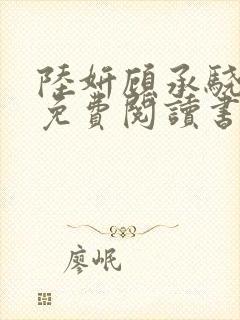 陸妍顧承驍
免費閱讀書
廖岷